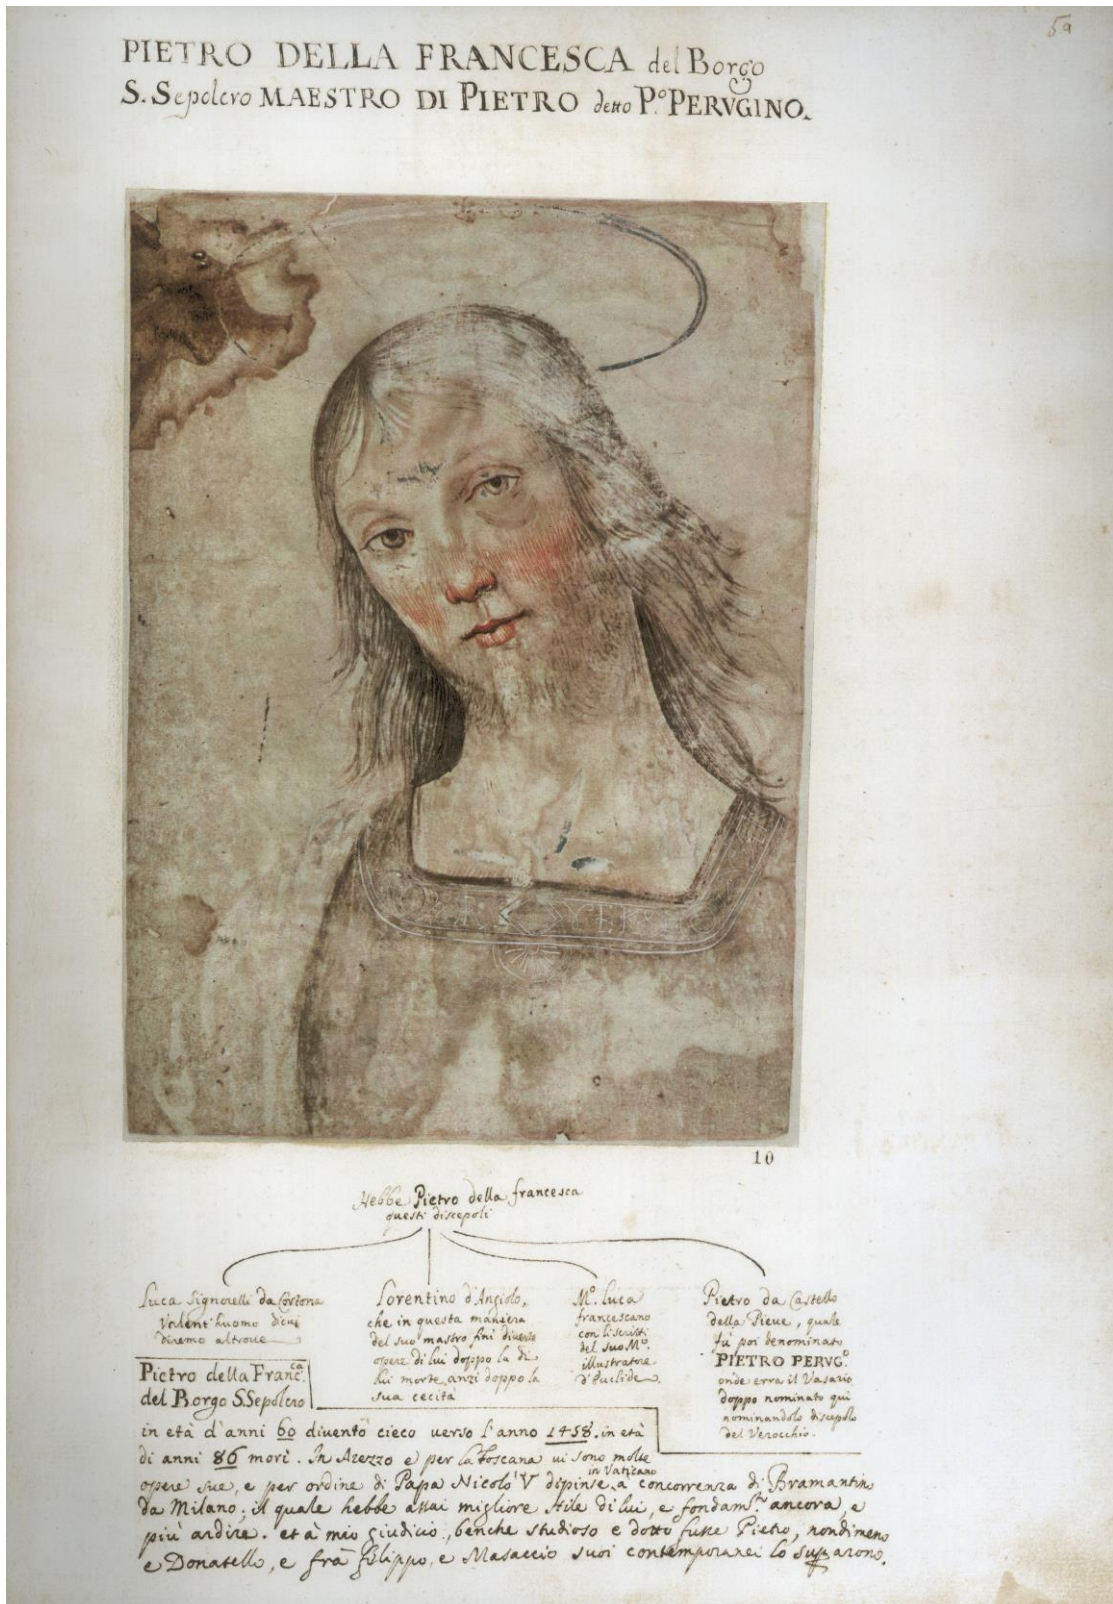 5a
PIETRO DELLA FRANCESCA del Borgo
S. Sepolcro MAESTRO DI PIETRO detto P.º PERVGINO.
10
Hebbe Pietro della francesca
questi discepoli
Luca Signorelli da Cortona
valent'huomo di cui
diremo altroue
Lorentino d'Angiolo,
che in questa maniera
del suo mastro finì diuerse
opere di lui doppo la di
lui morte, anzi doppo la
sua cecità
M.º Luca
francescano
con li scritti
del suo M.º
illustratore
d'Euclide.
Pietro da Castello
della Pieue, quale
fù poi denominato
PIETRO PERVG.º
onde erra il Vasario
doppo nominato qui
nominandolo discepolo
del Verocchio.
Pietro della Franc.ca
del Borgo S.Sepolcro
in età d'anni 60 diuentò cieco uerso l'anno 1458. in età
di anni 86 morì. In Arezzo e per la Toscana ui sono molte
opere sue, e per ordine di Papa Nicolò V dipinse in Vaticano a concorrenza di Bramantino
da Milano; il quale hebbe assai migliore stile di lui, e fondam.to ancora, e
più ardire. et à mio giudicio, benche studioso e dotto fusse Pietro, nondimeno
e Donatello, e frà filippo, e Masaccio suoi contemporanei lo superarono.